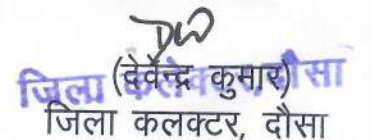 (देवेन्द्र कुमार)
जिला कलेक्टर, दौसा
जिला कलक्टर, दौसा